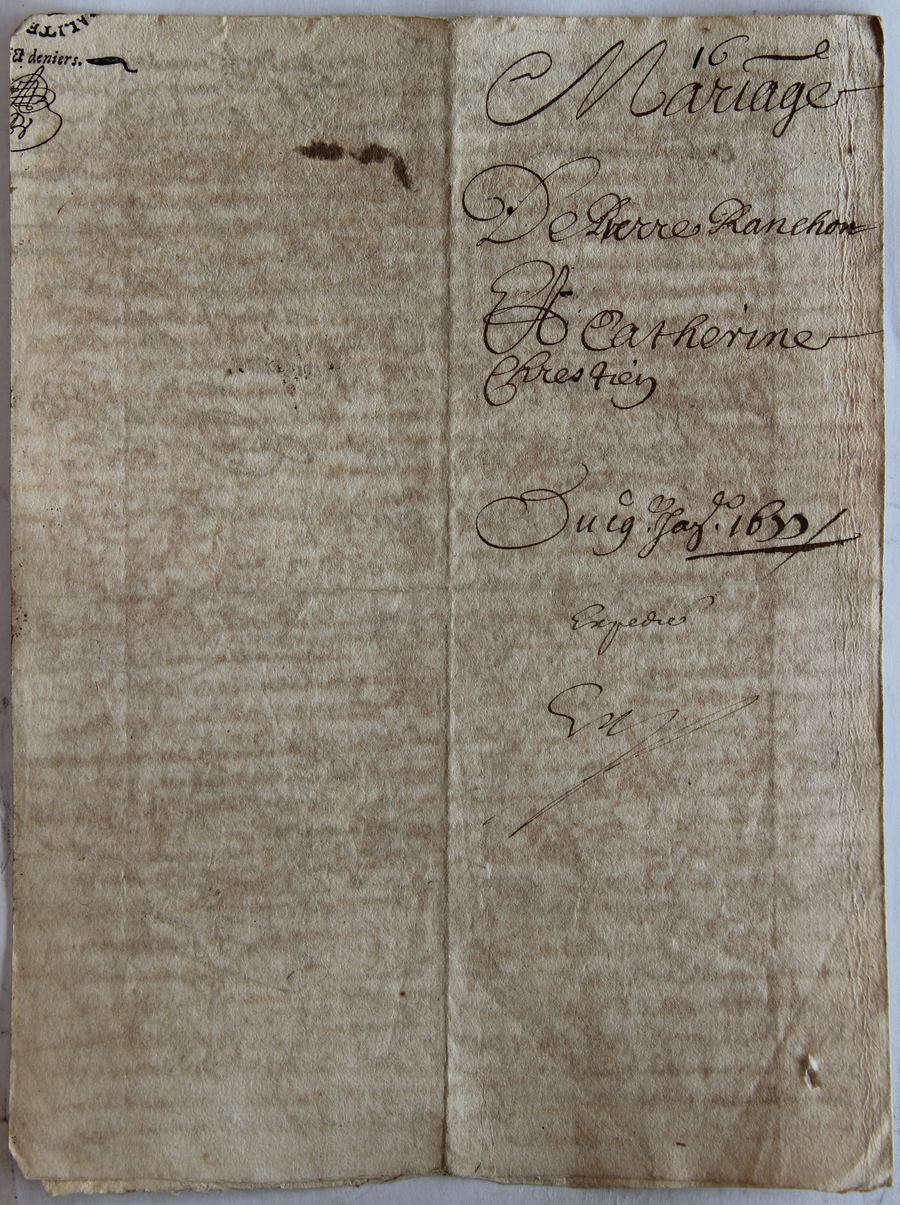 ALITE
Et deniers.
16
Mariage
De Pierre Planchon
Et Catherine
Chrestien
Du 19e Jan. 1677
Expedié